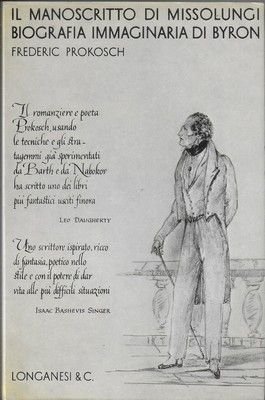 IL MANOSCRITTO DI MISSOLUNGI
BIOGRAFIA IMMAGINARIA DI BYRON
FREDERIC PROKOSCH
Il romanziere e poeta
Prokosch, usando
le tecniche e gli stra-
tagemmi già sperimentati
da Barth e da Nabokov
ha scritto uno dei libri
più fantastici usciti finora
LEO DAUGHERTY
Uno scrittore ispirato, ricco
di fantasia, poetico nello
stile e con il potere di dar
vita alle più difficili situazioni
ISAAC BASHEVIS SINGER
LONGANESI & C.